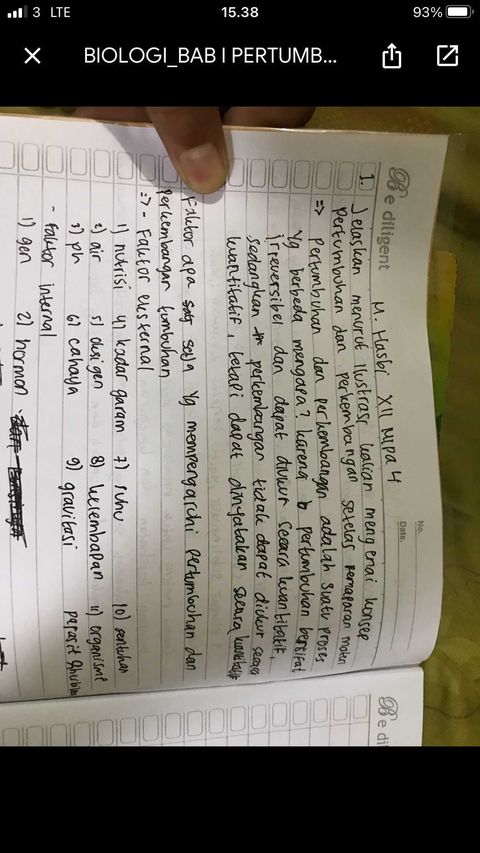 93%
15.38
3 LTE
BIOLOGI_BAB I PERTUMB...
Be diligent
No.
Date.
M. Hasbi XII MIPA 4
1. Jelaskan menurut ilustrasi kalian mengenai konsep
Pertumbuhan dan perkembangan setelas pemaparan materi
=> Pertumbuhan dan perkembangan adalah suatu proses
Yg berbeda mengapa? karena pertumbuhan bersifat
irreversibel dan dapat diukur secara kuantitatif,
sedangkan perkembangan tidak dapat diukur secara
kuantitatif, tetapi dapat dinyatakan secara kuantitatif
Faktor apa saja Yg mempengaruhi pertumbuhan dan
perkembangan tumbuhan
=> - Faktor eksternal
1) nutrisi 4) kadar garam 7) suhu 10) sentuhan
2) air 5) oksigen 8) kelembapan 11) organisme
3) ph 6) cahaya 9) gravitasi parasit &
- Faktor internal
1) gen 2) hormon
Be di